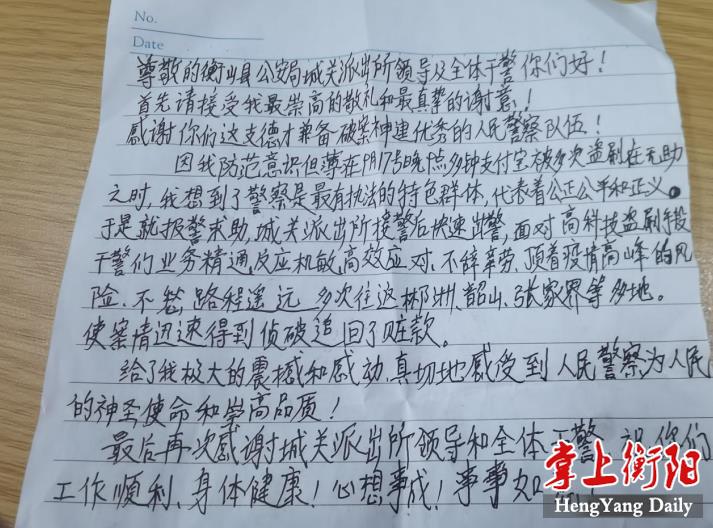 No.
Date
尊敬的衡山县公安局城关派出所领导及全体干警你们好!
首先请接受我最崇高的敬礼和最真挚的谢意!
感谢你们这支德才兼备破案神速优秀的人民警察队伍!
因我防范意识但薄在 17号晚 点多钟支付宝被多次盗刷在无助
之时,我想到了警察是最有执法的特色群体,代表着公正公平和正义。
于是就报警求助,城关派出所接警后快速出警,面对高科技盗刷手段
干警们业务精通,反应机敏,高效应对、不辞辛劳、顶着疫情高峰的风
险、不 路程遥远 多次往返郴州、韶山、张家界等多地。
使案情迅速得到侦破追回了赃款。
给了我极大的震撼和感动,真切地感受到人民警察为人民
的神圣使命和崇高品质!
最后再次感谢城关派出所领导和全体干警 祝你们
工作顺利、身体健康!心想事成!事事如
掌上衡阳
HengYang Daily